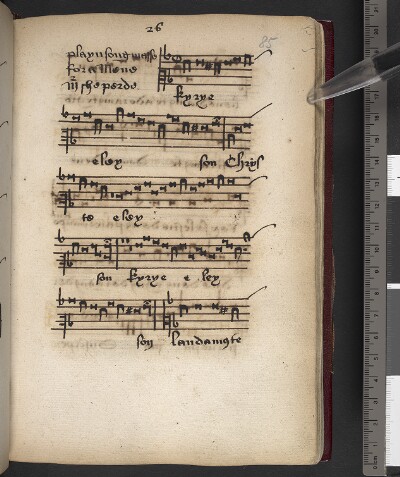 26
85
playnsong masse
for a mene
Mr sheperde
kyrye
eley son Chrys
te eley
son kyrye e ley
son laudamꝰte